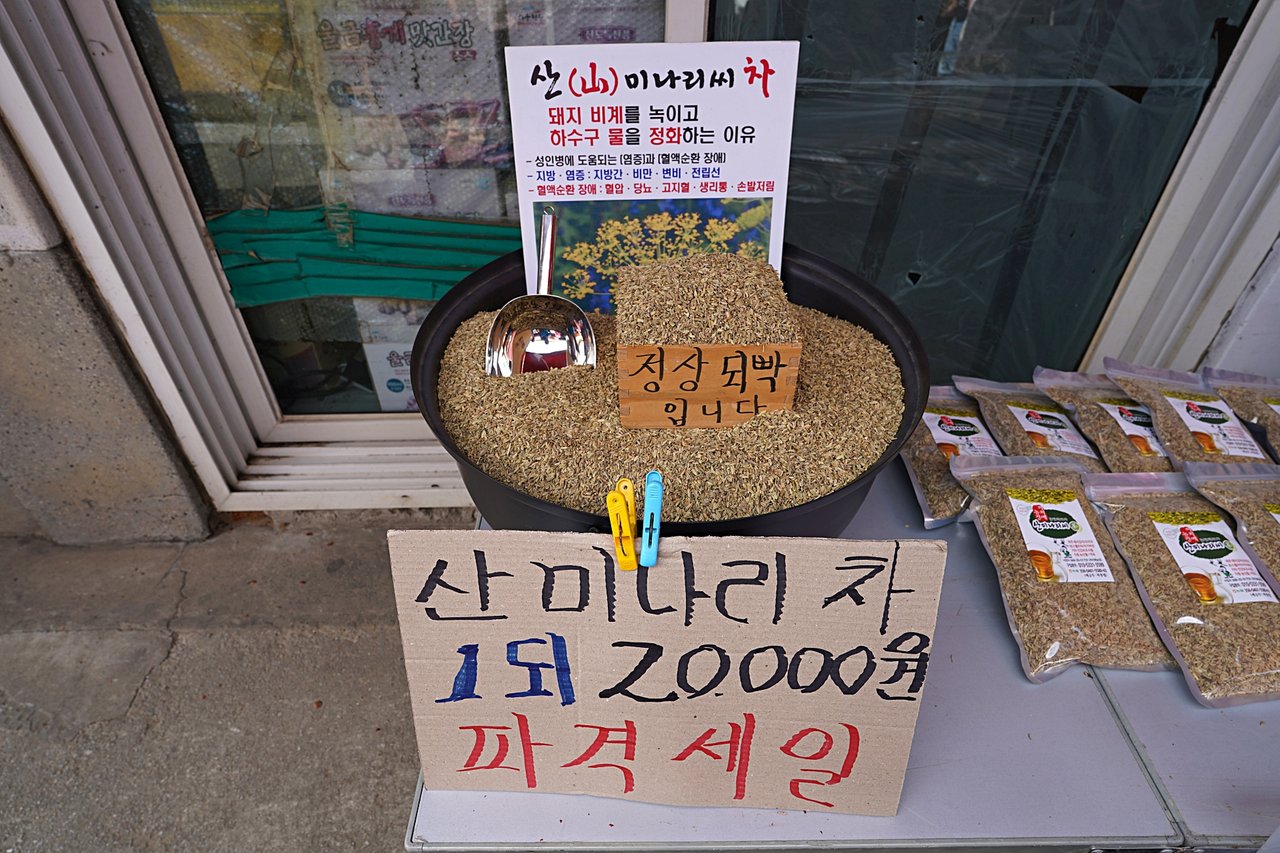 맛간장
산(山)미나리씨 차
돼지 비계를 녹이고
하수구 물을 정화하는 이유
- 성인병에 도움되는 [염증]과 [혈액순환 장애]
- 지방 · 염증 : 지방간 · 비만 · 변비 · 전립선
- 혈액순환 장애 : 혈압 · 당뇨 · 고지혈 · 생리통 · 손발저림
정상 되빡
입니다
산미나리차
1되 20.000원
파격세일
산미나리씨
산미나리씨